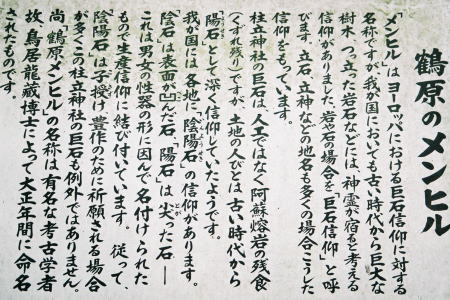 鶴原のメンヒル
「メンヒル」はヨーロッパにおける巨石信仰に対する
名称ですが、我が国においても古い時代から巨大な
樹木、つっ立った岩石などには、神霊が宿ると考える
信仰がありました。岩や石の場合を「巨石信仰」と呼
びます。立石、立神などの地名も多くの場合こうした
信仰をもっています。
柱立神社の巨石は、人工ではなく、阿蘇熔岩の残食
(くずれ残り)ですが、土地の人びとは古い時代から
「陽石」として深く信仰していたようです。
我が国には各地に、「陰陽石」の信仰があります。
「陰石」は表面が凹だ石、「陽石」は尖った石―
これは男女の性器の形に因んで名付けられた
もので生産信仰に結び付いています。従って、
「陰陽石」は子授け、豊作のために祈願される場合
が多く、この柱立神社の巨石も例外ではありません。
尚、鶴原メンヒルの名称は有名な考古学者
故鳥居龍蔵博士によって大正年間に命名
されたものです。